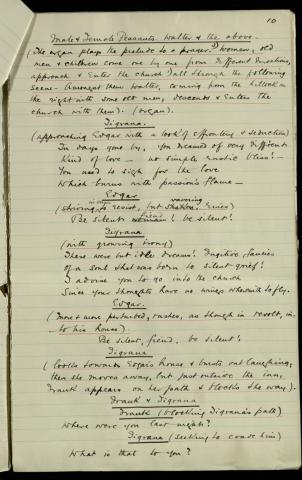 10
Male & Female Peasants. Walter & the above.
(The organ plays the prelude to a prayer. Women, old
men & children come one by one from different directions,
approach & enter the church. All through the following
scene. Amongst them Walter, coming from the hillock on
the right with some old men, descends & enters the
church with them). (Organ).
Tigrana.
(approaching Edgar with a look of effrontery & seduction)
In days gone by, you dreamed of very different
kind of love — no simple rustic bliss! —
You used to sigh for the love
Which burns with passion's flame —
Edgar
wavering
(striving to resist, but Eries)
Be silent! be silent!
Tigrana.
(with growing irony)
These were but idle dreams! Fugitive fancies
of a soul that was born to silent grief!
I advise you to go into the church
Since your thoughts have no wings wherewith to fly.
Edgar.
(more & more perturbed, rushes, as though in revolt, in-
to his house).
Be silent, fiend, be silent!
Tigrana
(looks towards Edgar's house & bursts out laughing,
then she moves away, but just outside the inn,
Frank appears on her path & blocks the way).
Frank & Tigrana
Frank (blocking Tigrana's path)
Where were you last night?
Tigrana (seeking to evade him)
What is that to you?